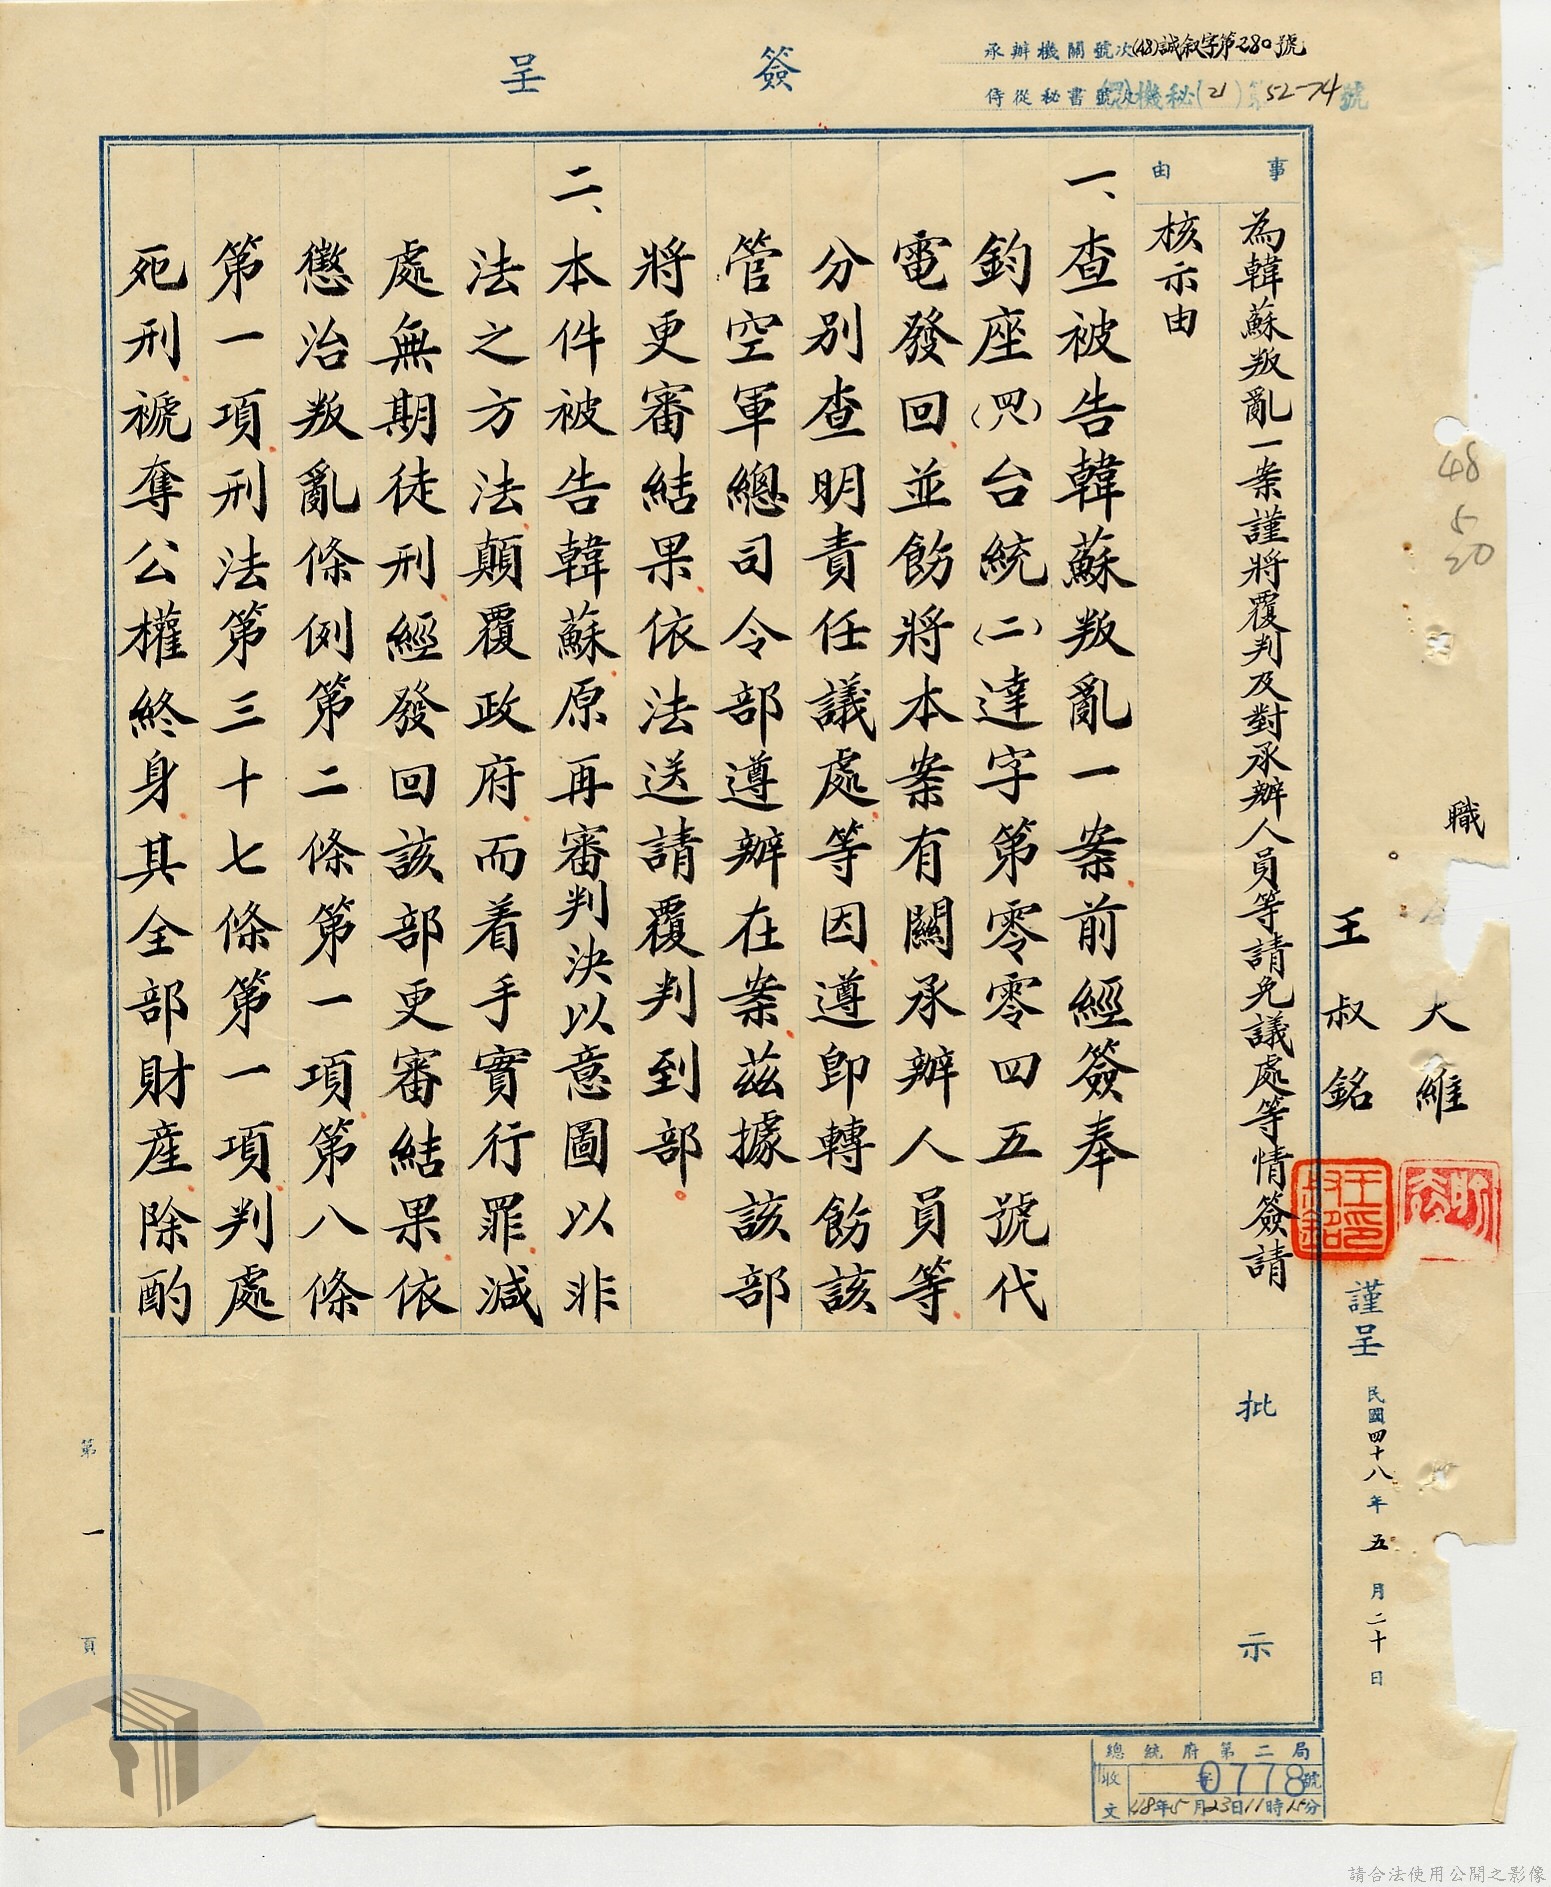 簽呈
承辦機關號次(48)誠叙字第280號
侍從秘書號次機秘(21)第52-74號
事由
為韓蘇叛亂一案謹將覆判及對承辦人員等請免議處等情簽請
核示由
一、查被告韓蘇叛亂一案前經簽奉
鈞座(四八)台統(二)達字第零零四五號代
電發回並飭將本案有關承辦人員等
分別查明責任議處等因遵即轉飭該
管空軍總司令部遵辦在案茲據該部
將更審結果依法送請覆判到部
二、本件被告韓蘇原再審判決以意圖以非
法之方法顛覆政府而着手實行罪減
處無期徒刑經發回該部更審結果依
懲治叛亂條例第二條第一項第八條
第一項刑法第三十七條第一項判處
死刑褫奪公權終身其全部財產除酌
批示
48
5
20
職
大維
王叔銘
王叔銘印
謹呈
民國四十八年五月二十日
第一頁
總統府第二局
收文
字0778號
48年5月23日11時15分
請合法使用公開之影像